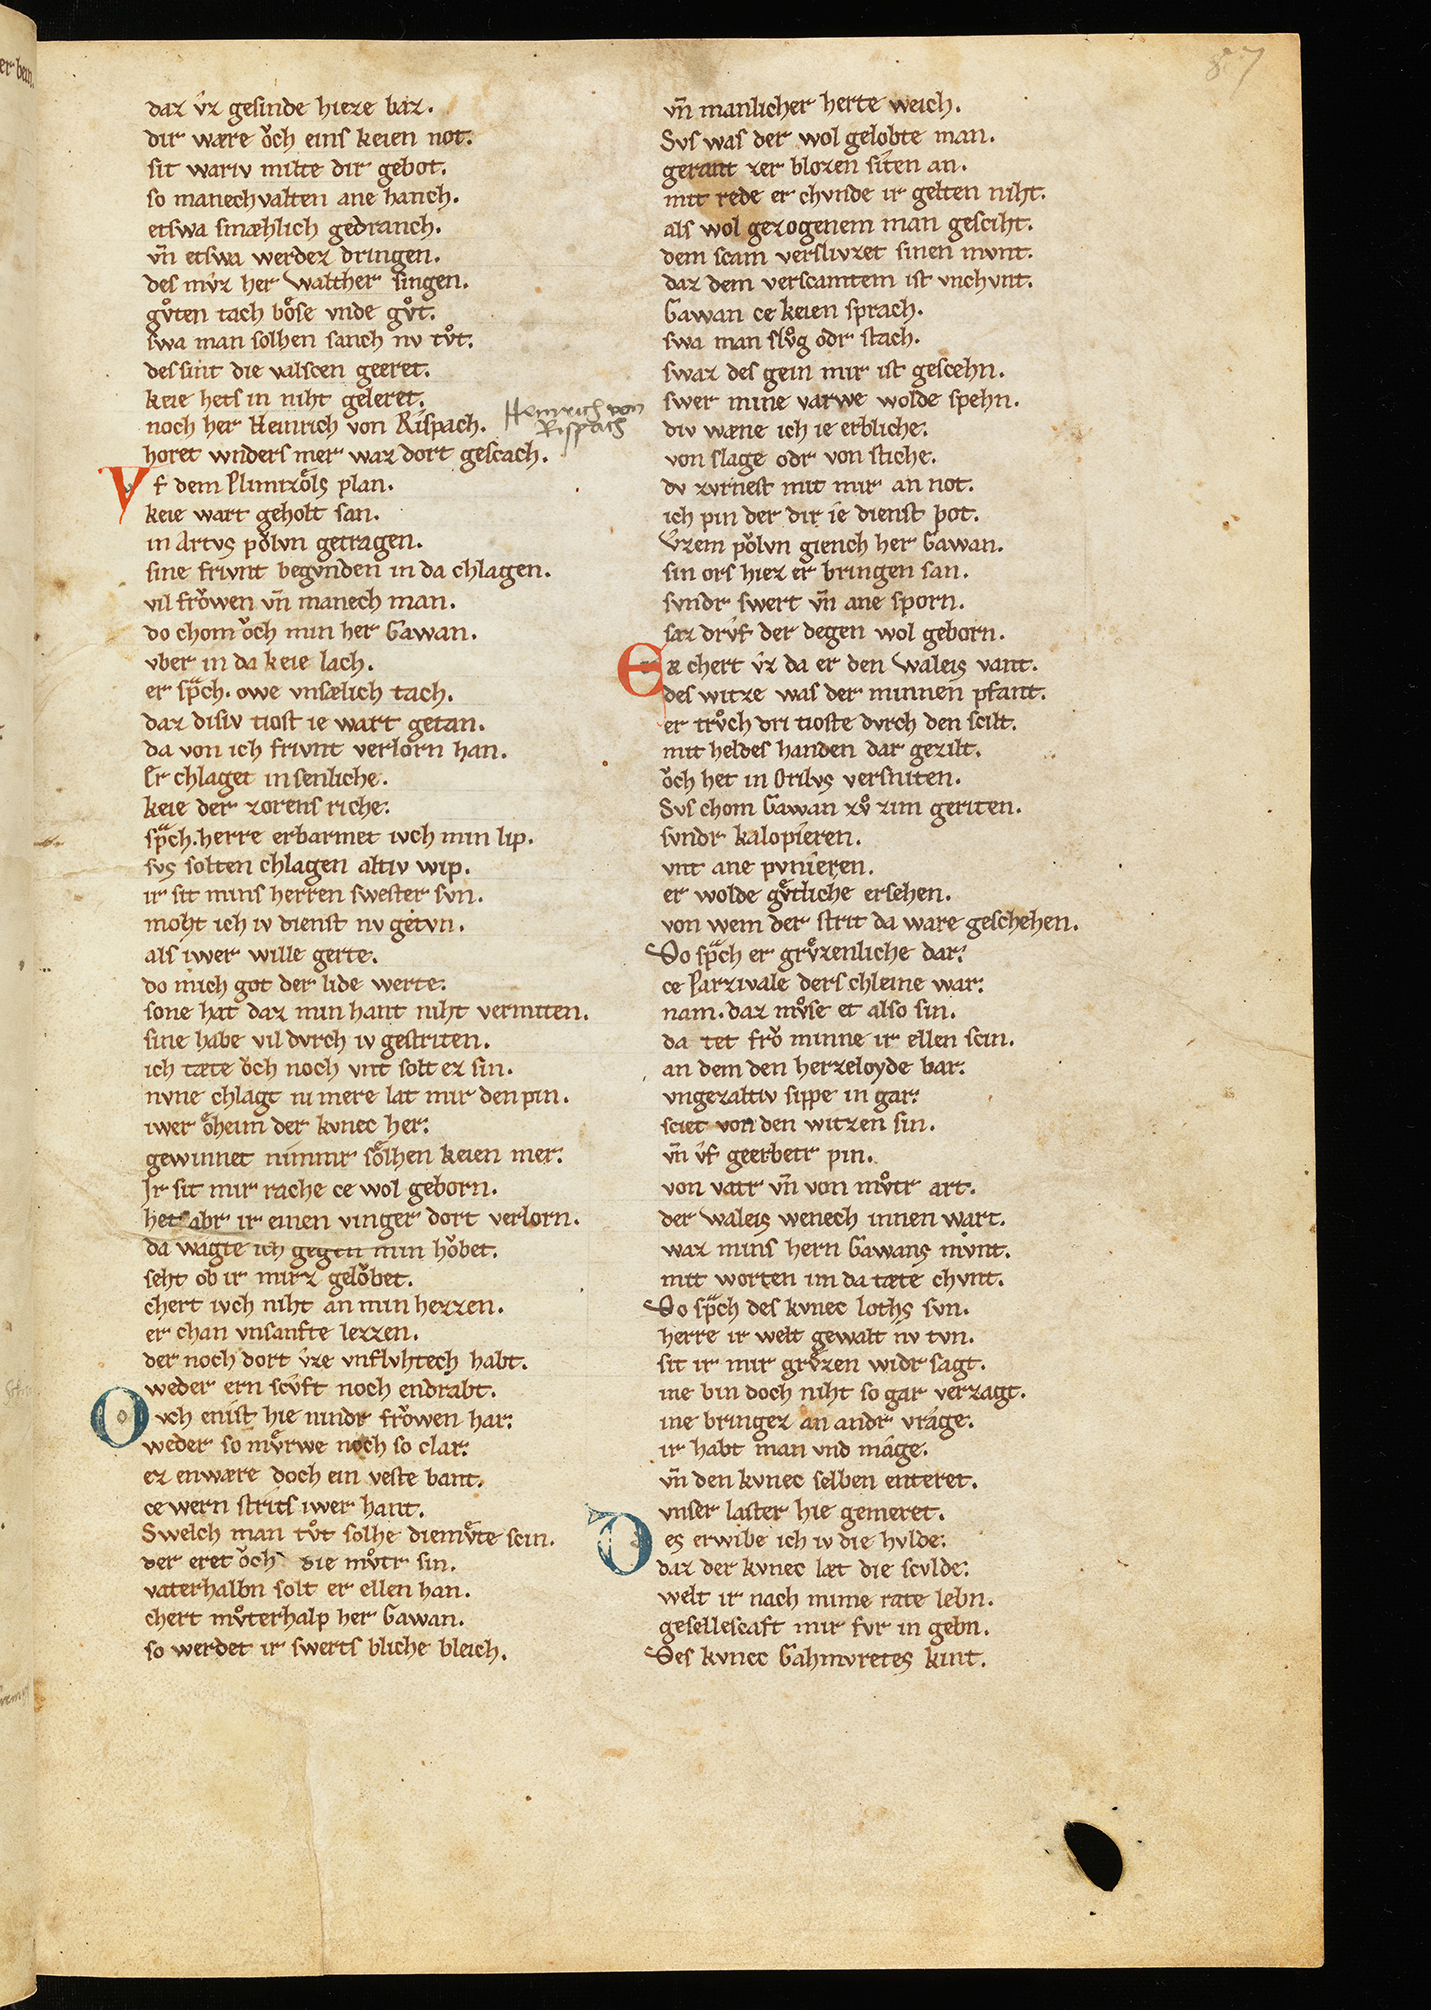 87
daz v̂z gesinde hieze baz.
dir wære ŏch eins keien not.
sit wariv milte dir gebot.
so manech valten ane hanch.
etswa smæhlich gedranch.
vn̄ etswa werdez dringen.
des mv̊z her Walther singen.
gv̊ten tach bo̊se vnde gv̊t.
swa man solhen sanch nv tv̊t.
des sint die valscen geeret.
keie hets in niht geleret.
noch her Heinrich von Rispach.
Heinrich von
Rispach
horet wnders mer waz dort gescach.
Vf dem Plimizo̊ls plan.
keie wart geholt san.
in Artvs pŏlvn getragen.
sine frivnt begvnden in da chlagen.
vil frŏwen vn̄ manech man.
do chom ŏch min her Gawan.
vber in da keie lach.
er sp̄ch. owe vnsælich tach.
daz disiv tiost ie wart getan.
da von ich frivnt verlorn han.
Er chlaget in senliche.
keie der zorens riche.
sp̄ch. herre erbarmet ivch min lip.
svs solten chlagen altiv wip.
ir sit mins herren swester svn.
moht ich iv dienst nv getvn.
als iwer wille gerte.
do mich got der lide werte.
sone hat daz min hant niht vermiten.
sine habe vil dvrch iv gestriten.
ich tæte ŏch noch vnt solt ez sin.
nvne chlagt nimere lat mir den pin.
iwer o̊heim der kvnec her.
gewinnet nimmr so̊lhen keien mer.
Ir sit mir rache ce wol geborn.
het abr ir einen vinger dort verlorn.
da wagte ich gegen min hŏbet.
seht ob ir mirz gelŏbet.
chert ivch niht an min herzen.
er chan vnsanfte lezzen.
der noch dort v̂ze vnflvhtech habt.
weder ern scv̂ft noch endrabt.
Ovch enist hie nindr frŏwen har.
weder so mv̊rwe noch so clar.
ez enwære doch ein veste bant.
ce wern strits iwer hant.
Swelch man tv̊t solhe diemv̊te scin.
der eret ŏch die mv̊tr sin.
vaterhalbn solt er ellen han.
chert mv̊terhalp her Gawan.
so werdet ir swerts bliche bleich.
vn̄ manlicher herte weich.
Svs was der wol gelobte man.
gerant zer blozen siten an.
mit rede er chvnde ir gelten niht.
als wol gezogenem man gesciht.
dem scam verslivzet sinen mvnt.
daz dem verscamtem ist vnchvnt.
Gawan ce keien sprach.
swa man slv̊g odr stach.
swaz des gein mir ist gescehn.
swer mine varwe wolde spehn.
div wæne ich ie erbliche.
von slage odr von stiche.
dv zvrnest mit mir an not.
ich pin der dir ie dienst bot.
V̂zem pŏlvn giench her Gawan.
sin ors hiez er bringen san.
svndr swert vn̄ ane sporn.
saz drv̂f der degen wol geborn.
Er chert v̂z da er den waleis vant.
des witze was der minnen pfant.
er trv̊ch dri tioste dvrch den scilt.
mit heldes handen dar gezilt.
ŏch het in Orilvs versniten.
Svs chom Gawan zv̊ zim geriten.
svndr kalopieren.
vnt ane pvnieren.
er wolde gv̊tliche ersehen.
von wem der strit da ware geschehen.
Do sp̄ch er grv̊zenliche dar.
ce Parzivale ders chleine war.
nam. daz mv̊se et also sin.
da tet frŏ minne ir ellen scin.
an dem den herzeloyde bar.
vngezaltiv sippe in gar.
sciet von den witzen sin.
vn̄ v̂f geerbetr pin.
von vatr vn̄ von mv̊tr art.
der waleis wenech innen wart.
waz mins hern Gawans mvnt.
mit worten im da tæte chvnt.
Do sp̄ch des kvnec loths svn.
herre ir welt gewalt nv tvn.
sit ir mir grv̊zen widr sagt.
ine bin doch niht so gar verzagt.
ine bringez an andr vrage.
ir habt man vnd mage.
vn̄ den kvnec selben enteret.
vnser laster hie gemeret.
Des erwibe ich iv die hvlde.
daz der kvnec læt die scvlde.
welt ir nach mime rate lebn.
gesellescaft mir fvr in gebn.
Des kvnec Gahmvretes kint.